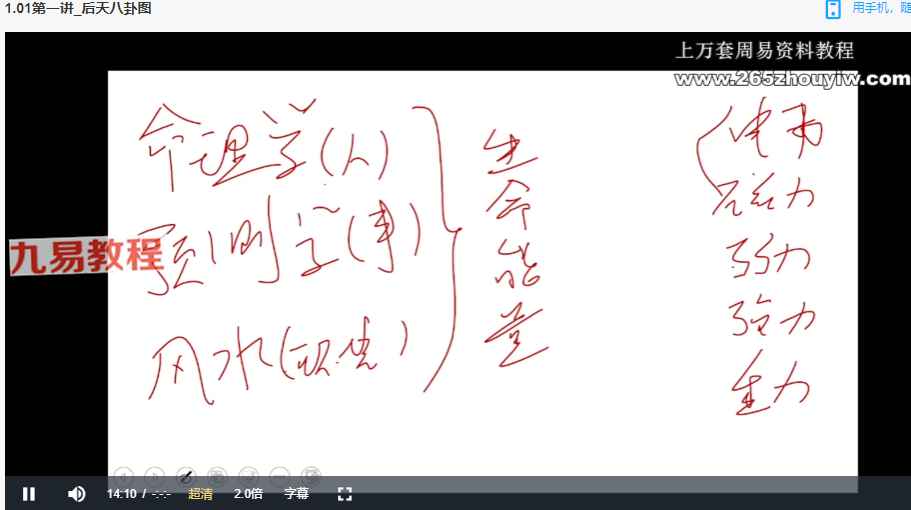 1.01第一讲_后天八卦图
用手机，随
上万套周易资料教程
www.265zhouyiw.com
命理学(人)
预测学(事)
风水(环境)
生命能量
电磁力
弱力
强力
重力
九易教程
14:10 / -:-:-
超清
2.0倍
字幕